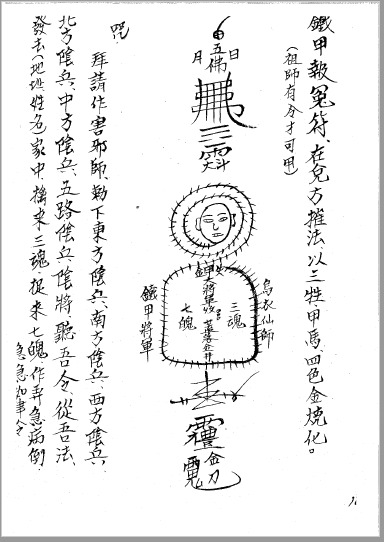 鐵甲報冤符、在兌方摧法、以三牲、甲馬、四色金燒化。
(祖師有分才可甲)
日 五佛 月
三
烏衣仙師
三魂
七魄
鐵甲將軍
金刀
咒
拜請作害邪師、勅下東方陰兵、南方陰兵、西方陰兵、
北方陰兵、中方陰兵、五路陰兵、陰將聽吾令、從吾法、
發去(地址姓名)家中擒來三魂捉來七魄作弄急病倒、
急急如事令